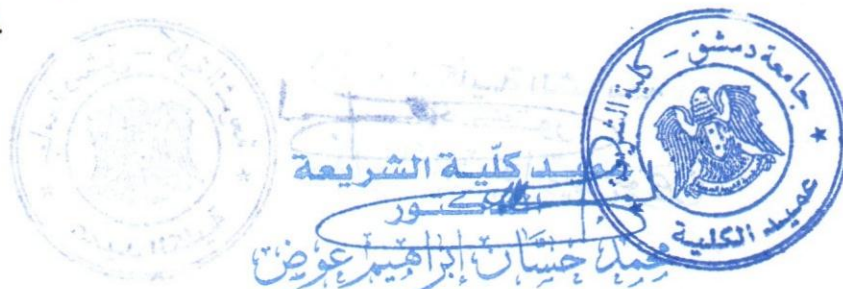 جامعة دمشق - كلية الشريعة
عميد الكلية
عميد كلّية الشريعة
الدكتور
محمد حسان إبراهيم عوض